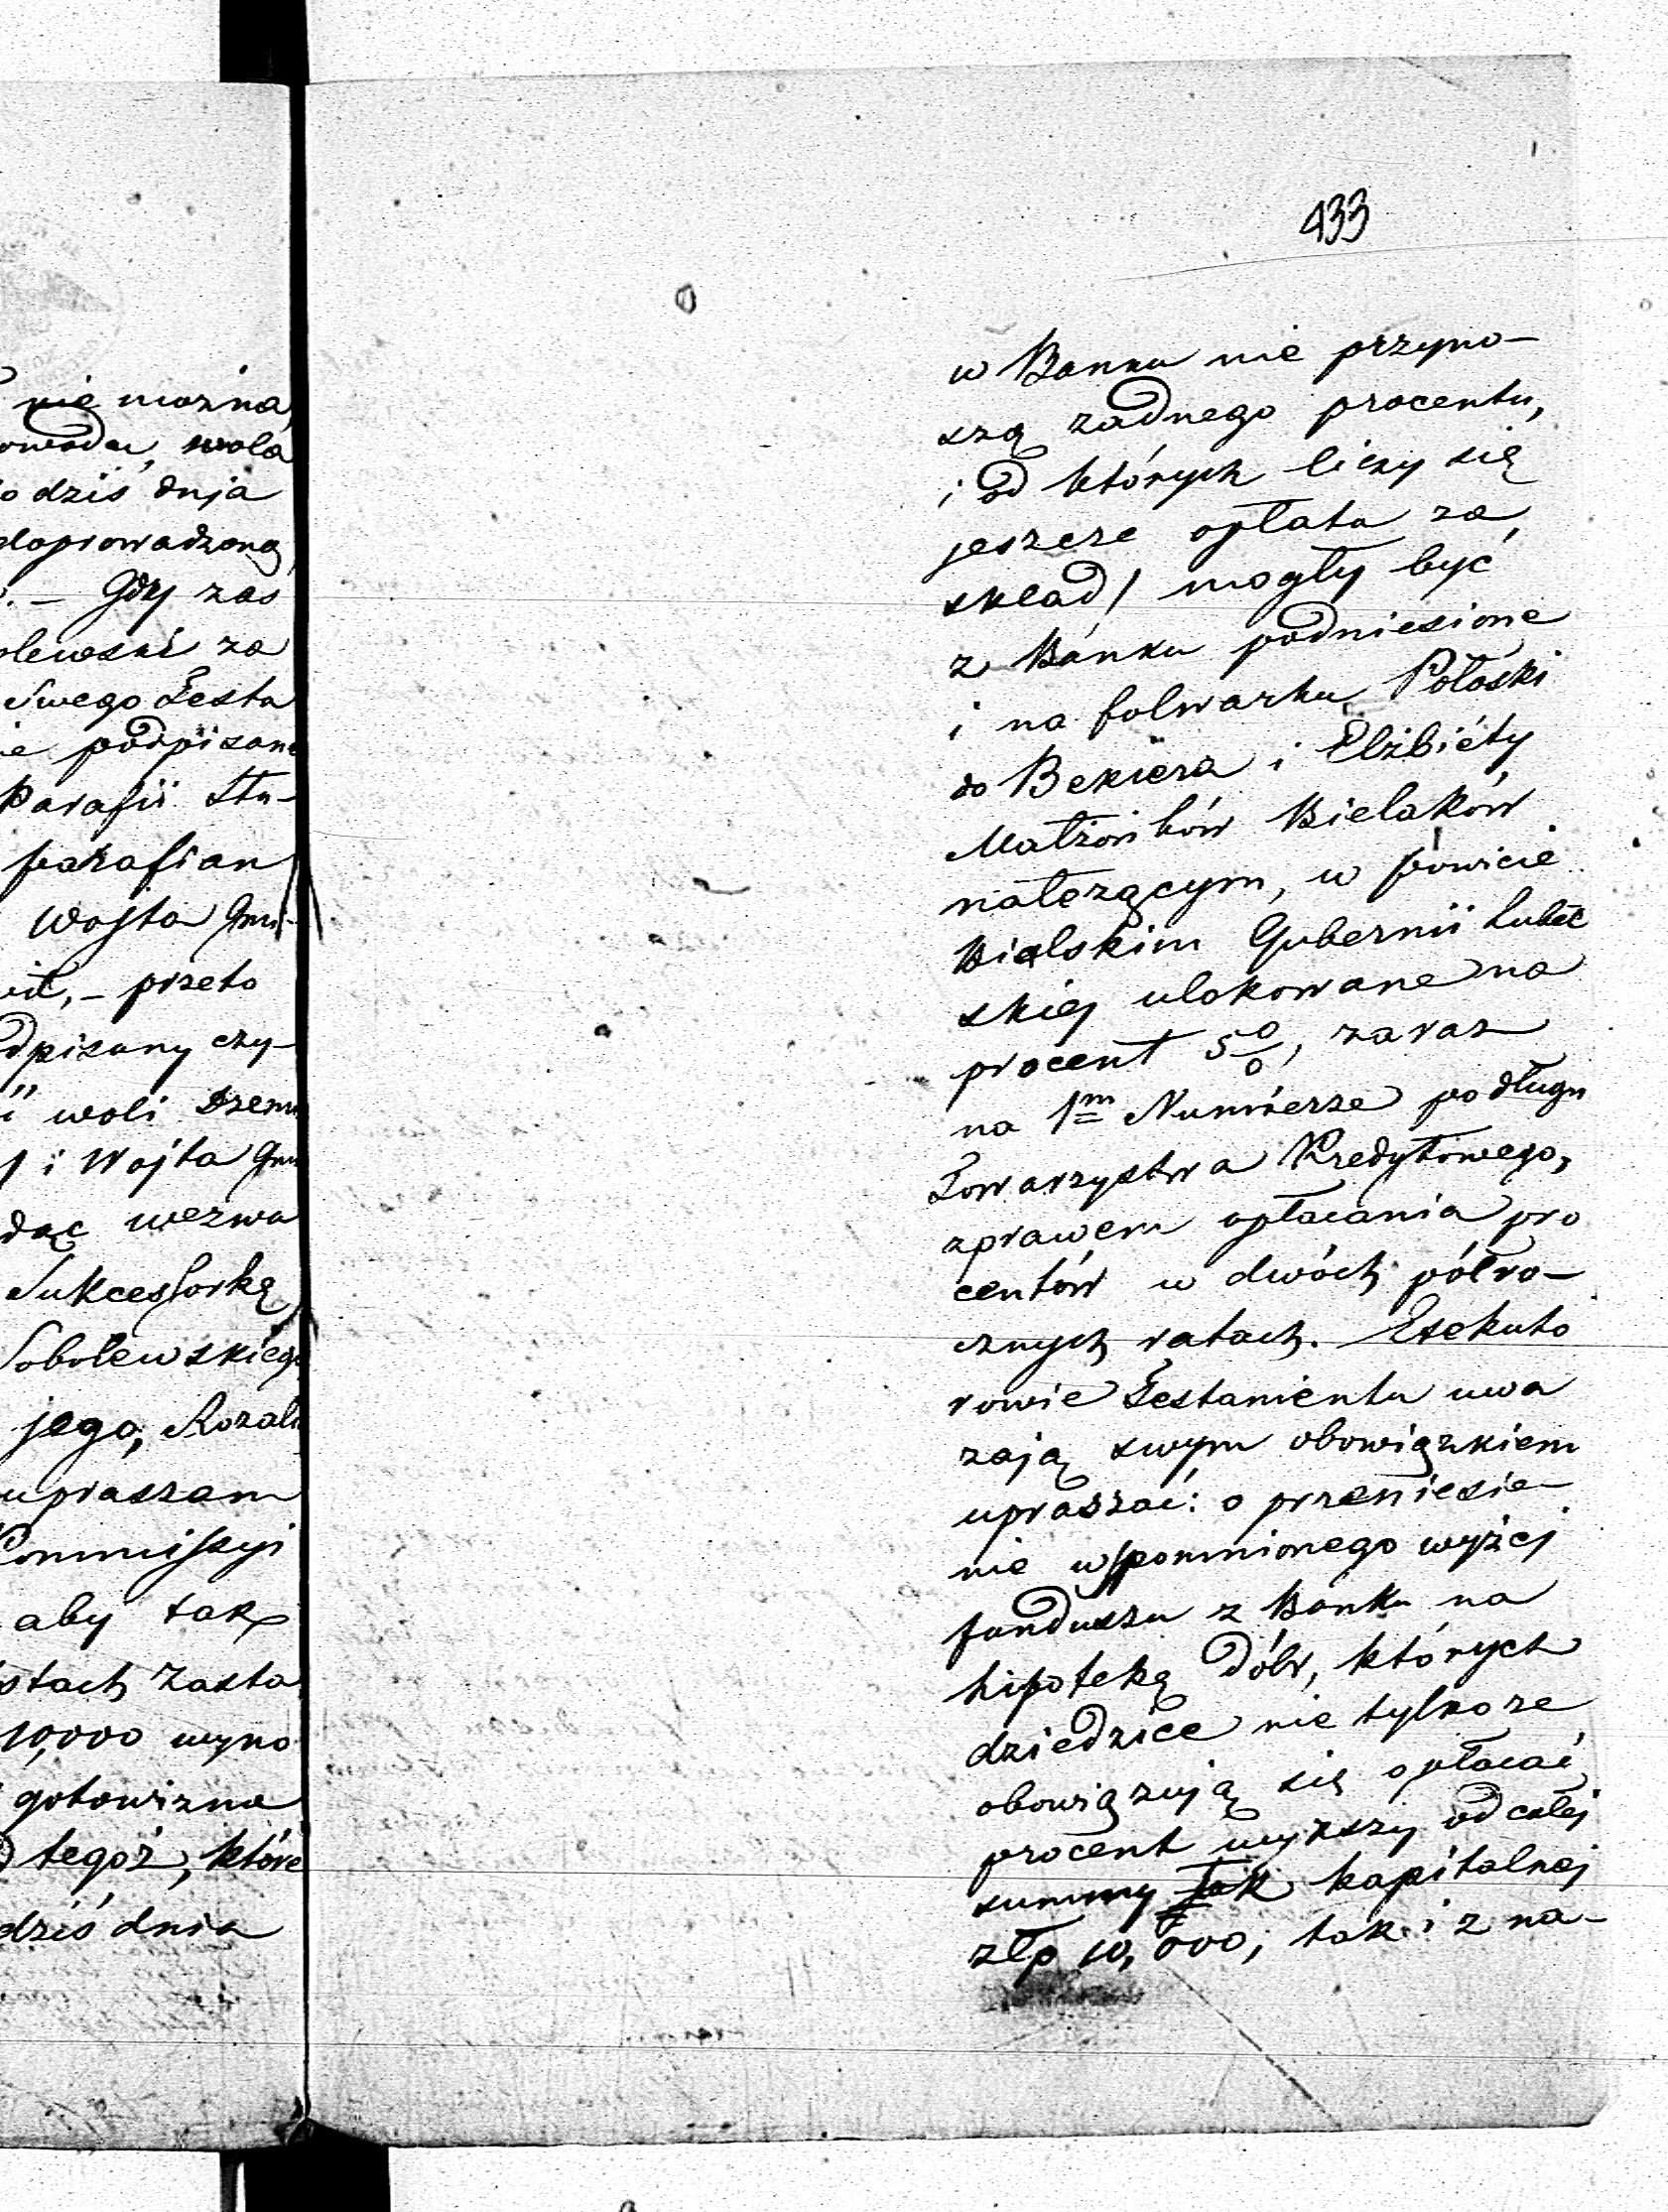 nie można,
wola
dziś dnja
doprowadzoną
. – Gdy zaś
olewski za
swego Testa
ie podpisane
Parafii Stu-
parafian
Wojta Gmi-
– przeto
dpisany czy-
woli
i Wojta Gmi
wezwa
Sukcessorką
Sobolewskiego
jego, Rozali
upraszam
Kommissyi
aby tak
stach Zasta
10,000 wyno
gotowizna
tegoż, które
dziś dnia
433
w Banku nie przyno-
szą żadnego procentu,
i od których liczy się
jeszcze opłata za
skład / mogły być
z Banku podniesione
i na folwarku Połoski
do Bekiera i Elżbiéty
Małżonków Bielaków
należącym, w powicie
Bialskim Gubernii Lubel
skiej ulokowane na
procent 5 0/0, zaraz
na 1m Numierze po długu
Towarzystwa Kredytowego,
z prawem opłacania pro
centów w dwóch półro-
cznych ratach. Exekuto
rowie Testamentu uwa
zają swym obowiązkiem
upraszać: o przeniesie-
nie wspomnionego wyżej
funduszu z Banku na
hipotekę dóbr, których
dziedzice nie tylko ze
obowiązują się opłacać
procent wyższy od całej
summy tak kapitalnej
złp 10,000, tak i z na-